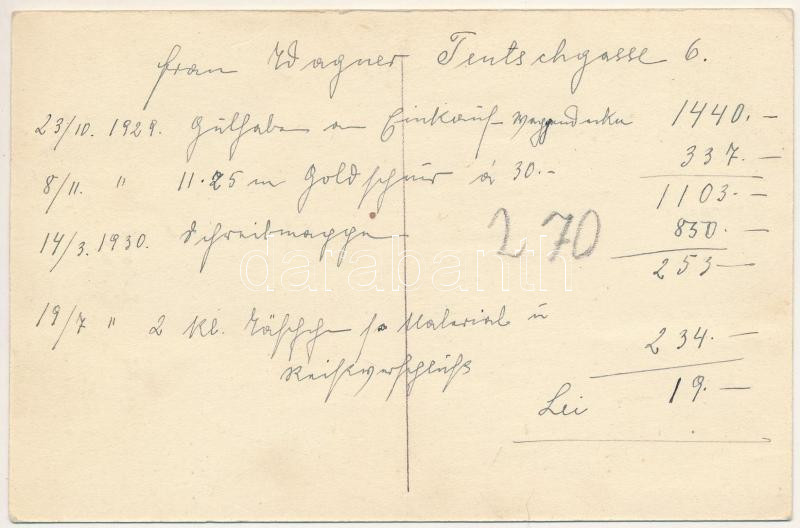 Frau Wagner Teutschgasse 6.
23/10. 1929. Guthaben an Einkauf Wagendecke 1440.—
337.—
8/11. " 11.25 m Goldschnur à 30.- 1103.—
14/3. 1930. Schreibmappe 850.—
270
253—
19/7 " 2 kl. Täschchen s. Material u 234.—
Reißverschluß
Lei 19.—
darabanth